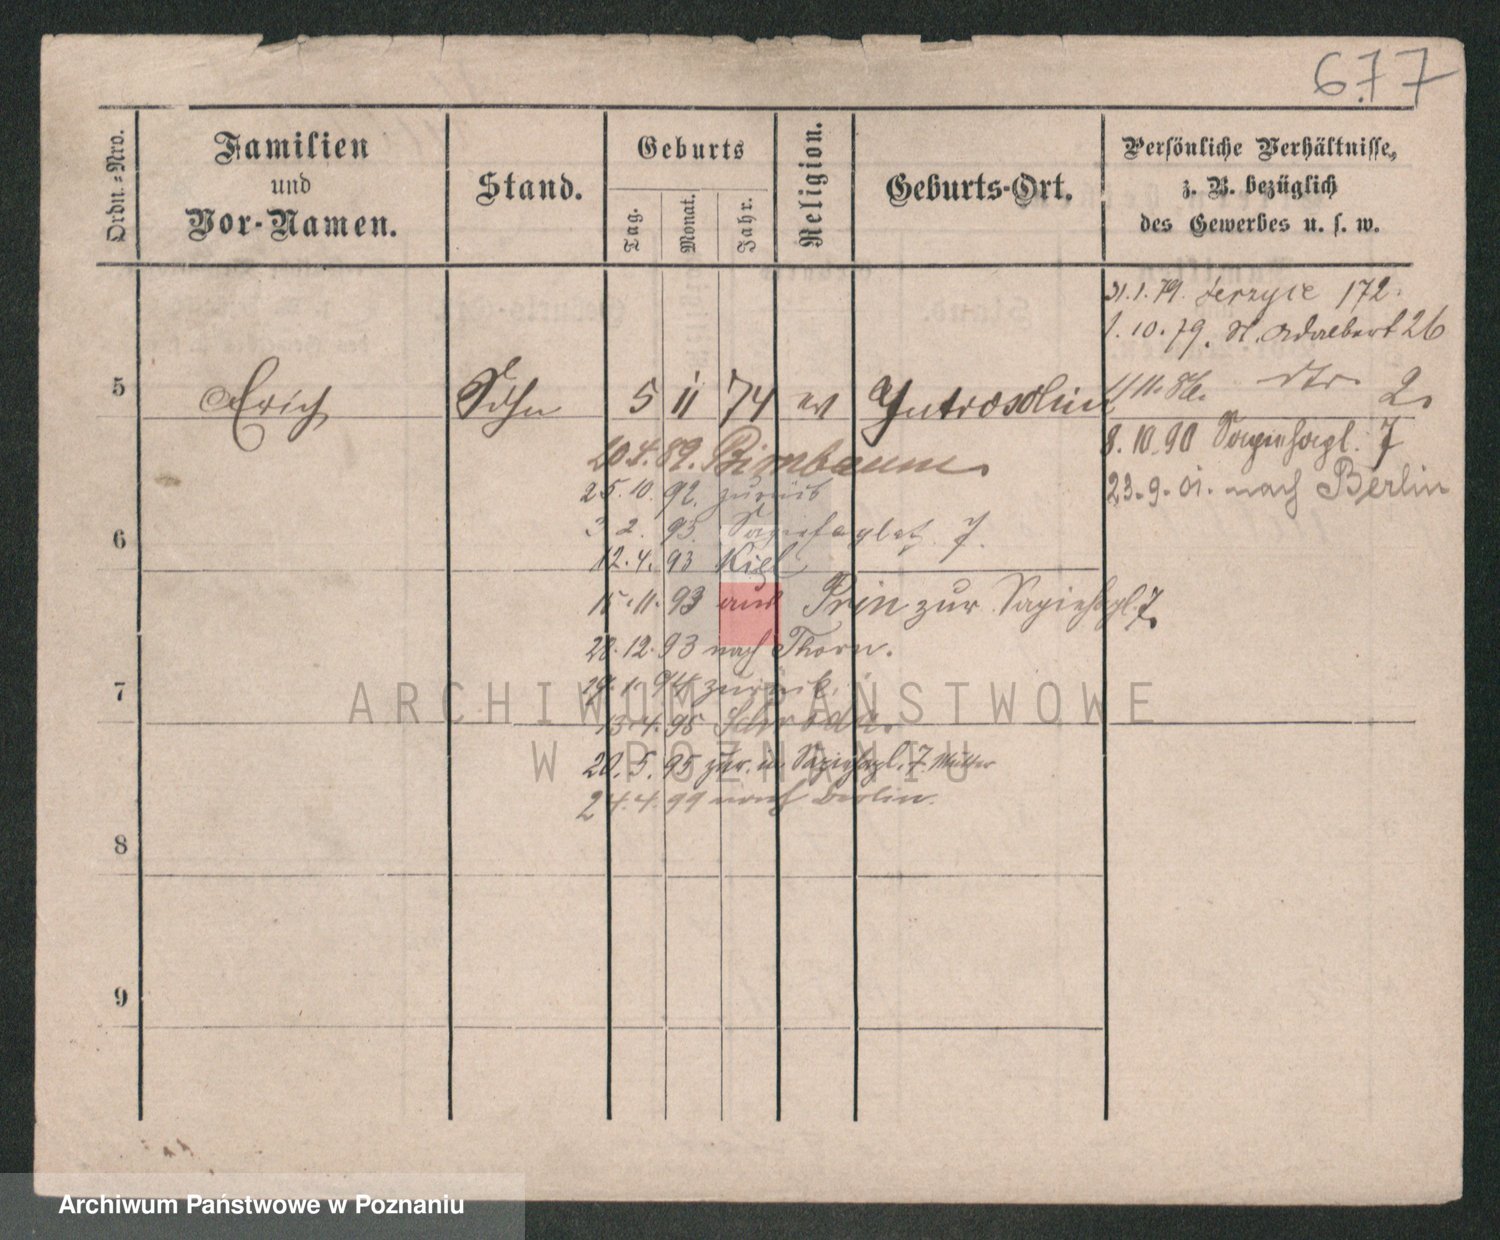 677
Ordn.-Nro.
Familien
und
Vor-Namen.
Stand.
Geburts
Tag.
Monat.
Jahr.
Religion.
Geburts-Ort.
Persönliche Verhältnisse,
z. B. bezüglich
des Gewerbes u. s. w.
31.1.79. Jerzyce 172.
1.10.79. St. Adalbert 26
5
Erich
Sohn
5 11 74 ev Jutroschin
11.11.86. dto 2.
8.10.90 Sapiehapl. 7
23.9.01. nach Berlin
20.4.89. Birnbaum.
25.10.92. zurück
6
3 2. 93. Sapiehaplatz 7.
12.4.93 Kiel
15.11.93 aus zur Sapiehapl. 7.
28.12.93 nach Thorn.
7
29.1.94 zurück.
13.4.95 Schroda.
20.5.95 zur. in Sapiehapl. 7 Mutter
24.4.99 nach Berlin.
8
9
ARCHIWUM PAŃSTWOWE
W POZNANIU
Archiwum Państwowe w Poznaniu